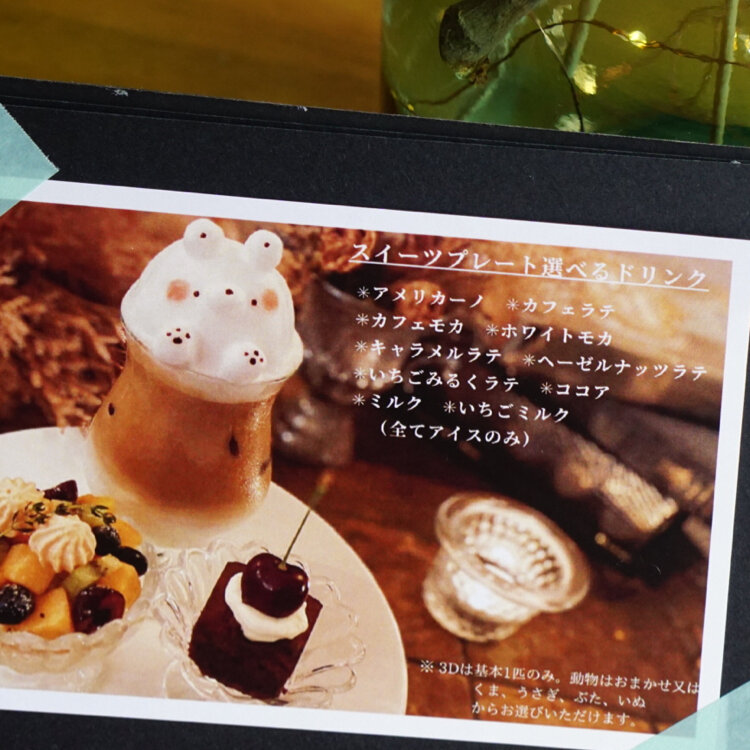 スイーツプレート選べるドリンク
✳アメリカーノ ✳カフェラテ
✳カフェモカ ✳ホワイトモカ
✳キャラメルラテ ✳ヘーゼルナッツラテ
✳いちごみるくラテ ✳ココア
✳ミルク ✳いちごミルク
（全てアイスのみ）
※ 3Dは基本1匹のみ。動物はおまかせ又は
くま、うさぎ、ぶた、いぬ
からお選びいただけます。